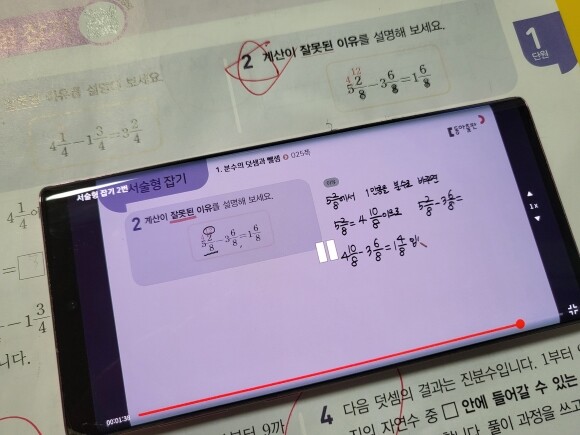 2 계산이 잘못된 이유를 설명해 보세요.
1
단원
4 12
5 2/8 - 3 6/8 = 1 6/8
이유를 설명해 보세요.
4 1/4 - 1 3/4 = 3 2/4
서술형 잡기 2번
서술형 잡기
1. 분수의 덧셈과 뺄셈 025쪽
동아출판
2 계산이 잘못된 이유를 설명해 보세요.
5 2/8 - 3 6/8 = 1 6/8
5 2/8에서 1만큼을 분수로 바꾸면
5 2/8 = 4 10/8 이므로
5 2/8 - 3 6/8 =
4 10/8 - 3 6/8 = 1 4/8
1x
00:01:39
4 1/4
=
- 1 3/4
니다.
부터 9까
4 다음 덧셈의 결과는 진분수입니다. 1부터
지의 자연수 중 □ 안에 들어갈 수 있는
풀이 과정을 쓰고